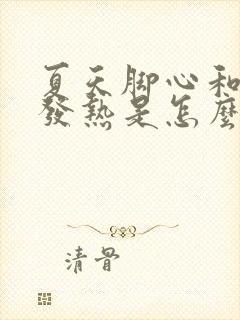 夏天脚心和
發熱是怎麼
清骨